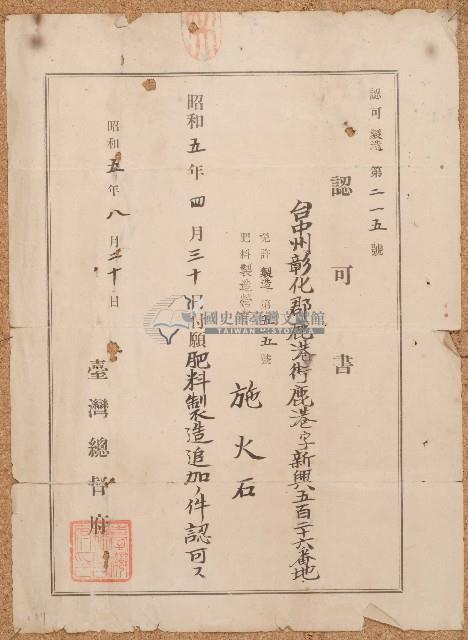 認可製造第二一五號
認可書
台中州彰化郡鹿港街鹿港字新興五百二十六番地
免許製造第五五號
肥料製造營業
施火石
昭和五年四月三十日附願肥料製造追加ノ件認可ス
昭和五年八月二十日
臺灣總督府
國史館臺灣文獻館
TAIWAN HISTORICA